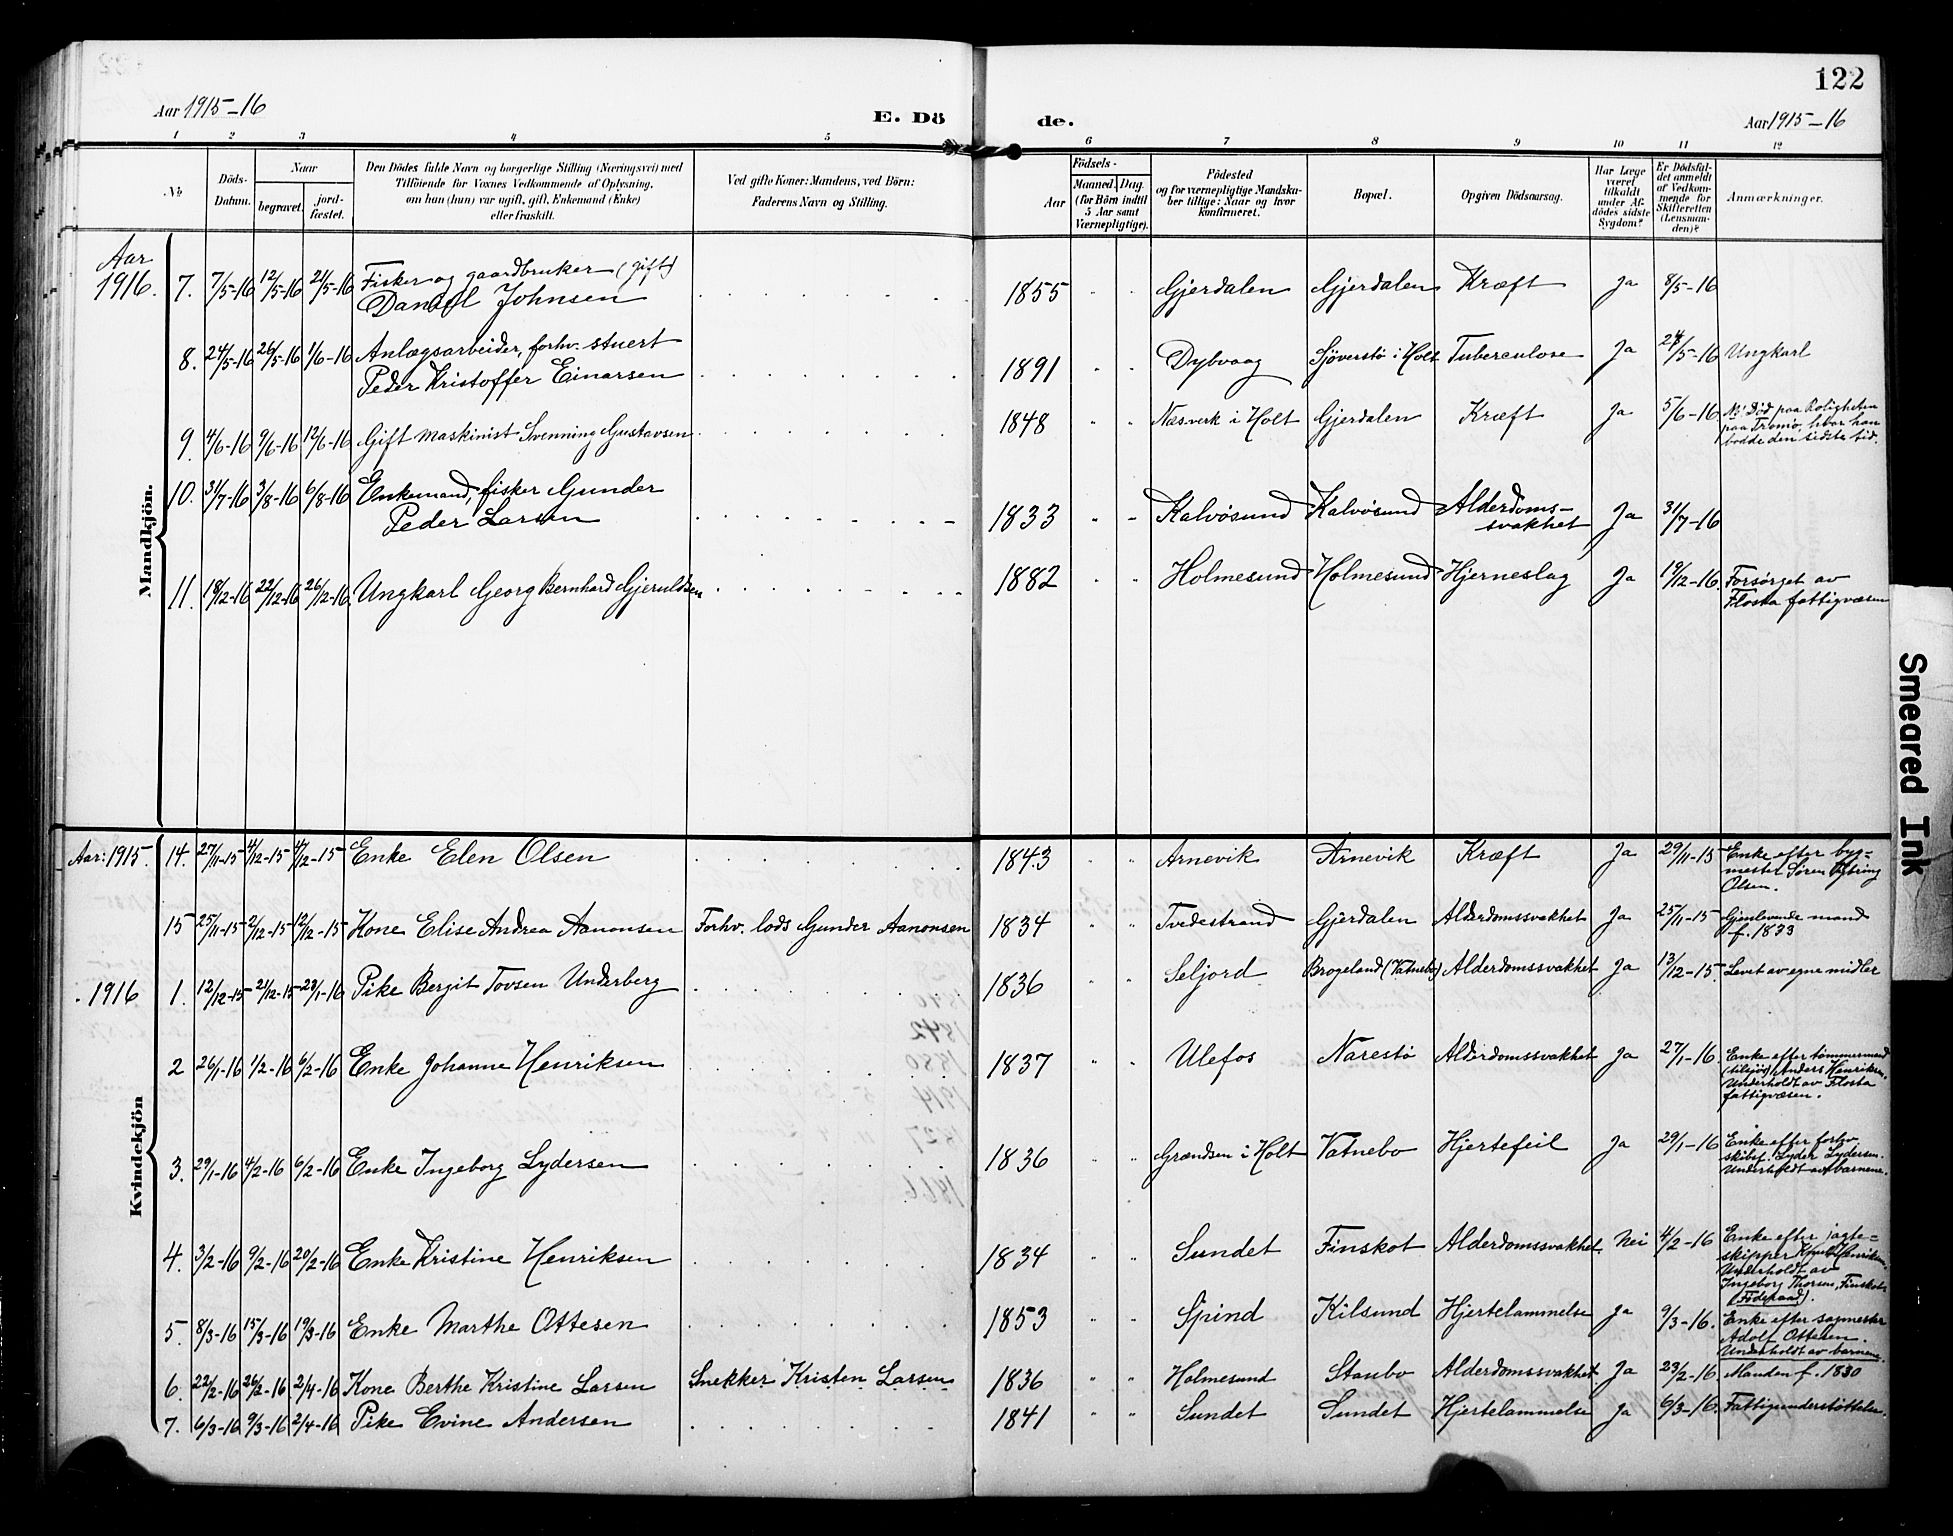 122
Aar 1915-16
E. Dö de.
Aar 1915-16
1 2 3 4 5 6 7 8 9 10 11 12
No
Döds-Datum.
Naar
begravet.
jord-fæstet.
Den Dödes fulde Navn og borgerlige Stilling (Næringsvei) med
Tilföiende for Voxnes Vedkommende af Oplysning,
om han (hun) var ugift, gift, Enkemand (Enke)
eller fraskilt.
Ved gifte Koner: Mandens, ved Börn:
Faderens Navn og Stilling.
Födsels-
Aar
Maaned. Dag.
(for Börn indtil
5 Aar samt
Værnepligtige).
Födested
og for værnepligtige Mandska-
ber tillige: Naar og hvor
konfirmeret.
Bopæl.
Opgiven Dödsaarsag.
Har Læge
været
tilkaldt
under Af-
dödes sidste
Sygdom?
Er Dödsfal-
det anmeldt
af Vedkom-
mende for
Skifteretten
(Lensman-
den)?
Anmærkninger.
Mandkjön.
Aar
1916. 7. 7/5-16 12/5-16 21/5-16 Fisker og gaardbruker (gift)
Daniel Johnsen 1855 Gjerdalen Gjerdalen Kræft Ja 8/5-16
8. 24/5-16 26/5-16 1/6-16 Anlægsarbeider, forhv. stuert
Peder Kristoffer Einarsen 1891 Dybvaag Sjöverstö i Holt Tuberculose Ja 24/5-16 Ungkarl
9. 4/6-16 9/6-16 12/6-16 Gift maskinist Svenning Gustavsen 1848 Næsverk i Holt Gjerdalen Kræft Ja 5/6-16 N: Död paa Roligheten
paa Tromö, hvor han
bodde den sidste tid.
10. 31/7-16 3/8-16 6/8-16 Enkemand, fisker Gunder
Peder Larsen 1833 Kalvösund Kalvösund Alderdoms-
svakhet Ja 31/7-16
11. 18/12-16 22/12-16 26/12-16 Ungkarl Georg Bernhard Gjeruldsen 1882 Holmesund Holmesund Hjerneslag Ja 19/12-16. Forsörget av
Flosta fattigvæsen
Kvindekjön
Aar: 1915. 14. 27/11-15 4/12-15 4/12-15 Enke Elen Olsen 1843 Arnevik Arnevik Kræft Ja 29/11-15 Enke efter byg-
mester Sören
Olsen.
15 25/11-15 2/12-15 12/12-15 Kone Elise Andrea Aanonsen Forhv. lods Gunder Aanonsen 1834 Tvedestrand Gjerdalen Alderdomssvakhet Ja 25/11-15 Gjenlevende mand
f. 1833
1916 1. 12/12-15 2/12-15 23/1-16 Pike Bergit Tovsen Underberg 1836 Seljord Brogeland (Vatnebo) Alderdomssvakhet Ja 13/12-15. Levet av egne midler
2 26/1-16 1/2-16 6/2-16 Enke Johanne Henriksen 1837 Ulefos Narestö Alderdomssvakhet Ja 27/1-16 Enke efter tömmermand
(tilsjös) Anders Henriksen.
Underholdt av Flosta
fattigvæsen.
3. 29/1-16 4/2-16 6/2-16 Enke Ingeborg Lydersen 1836 Grændsen i Holt Vatnebo Hjertefeil Ja 29/1-16 Enke efter forhv.
skibst. Lyder Lydersen.
Underholdt av barnene.
4. 3/2-16 9/2-16 20/2-16 Enke Kristine Henriksen 1834 Sundet Finskot Alderdomssvakhet. Nei 4/2-16 Enke efter jagte-
skipper Knut Henriksen.
Underholdt av
Ingeborg Thorsen, Finskot.
(Föderaad).
5. 8/3-16 15/3-16 19/3-16 Enke Marthe Ottesen 1853 Spind Kilsund Hjertelammelse Ja 9/3-16. Enke efter sagmester
Adolf Ottesen.
Underholdt av barnene.
6. 22/2-16 26/2-16 2/4-16 Kone Berthe Kristine Larsen Snekker Kristen Larsen 1836 Holmesund Staubo Alderdomssvakhet Ja 23/2-16 Manden f. 1830
7. 6/3-16 9/3-16 2/4-16 Pike Evine Andersen 1841 Sundet Sundet Hjertelammelse Ja 6/3-16. Fattigunderstöttelse.
Smeared Ink